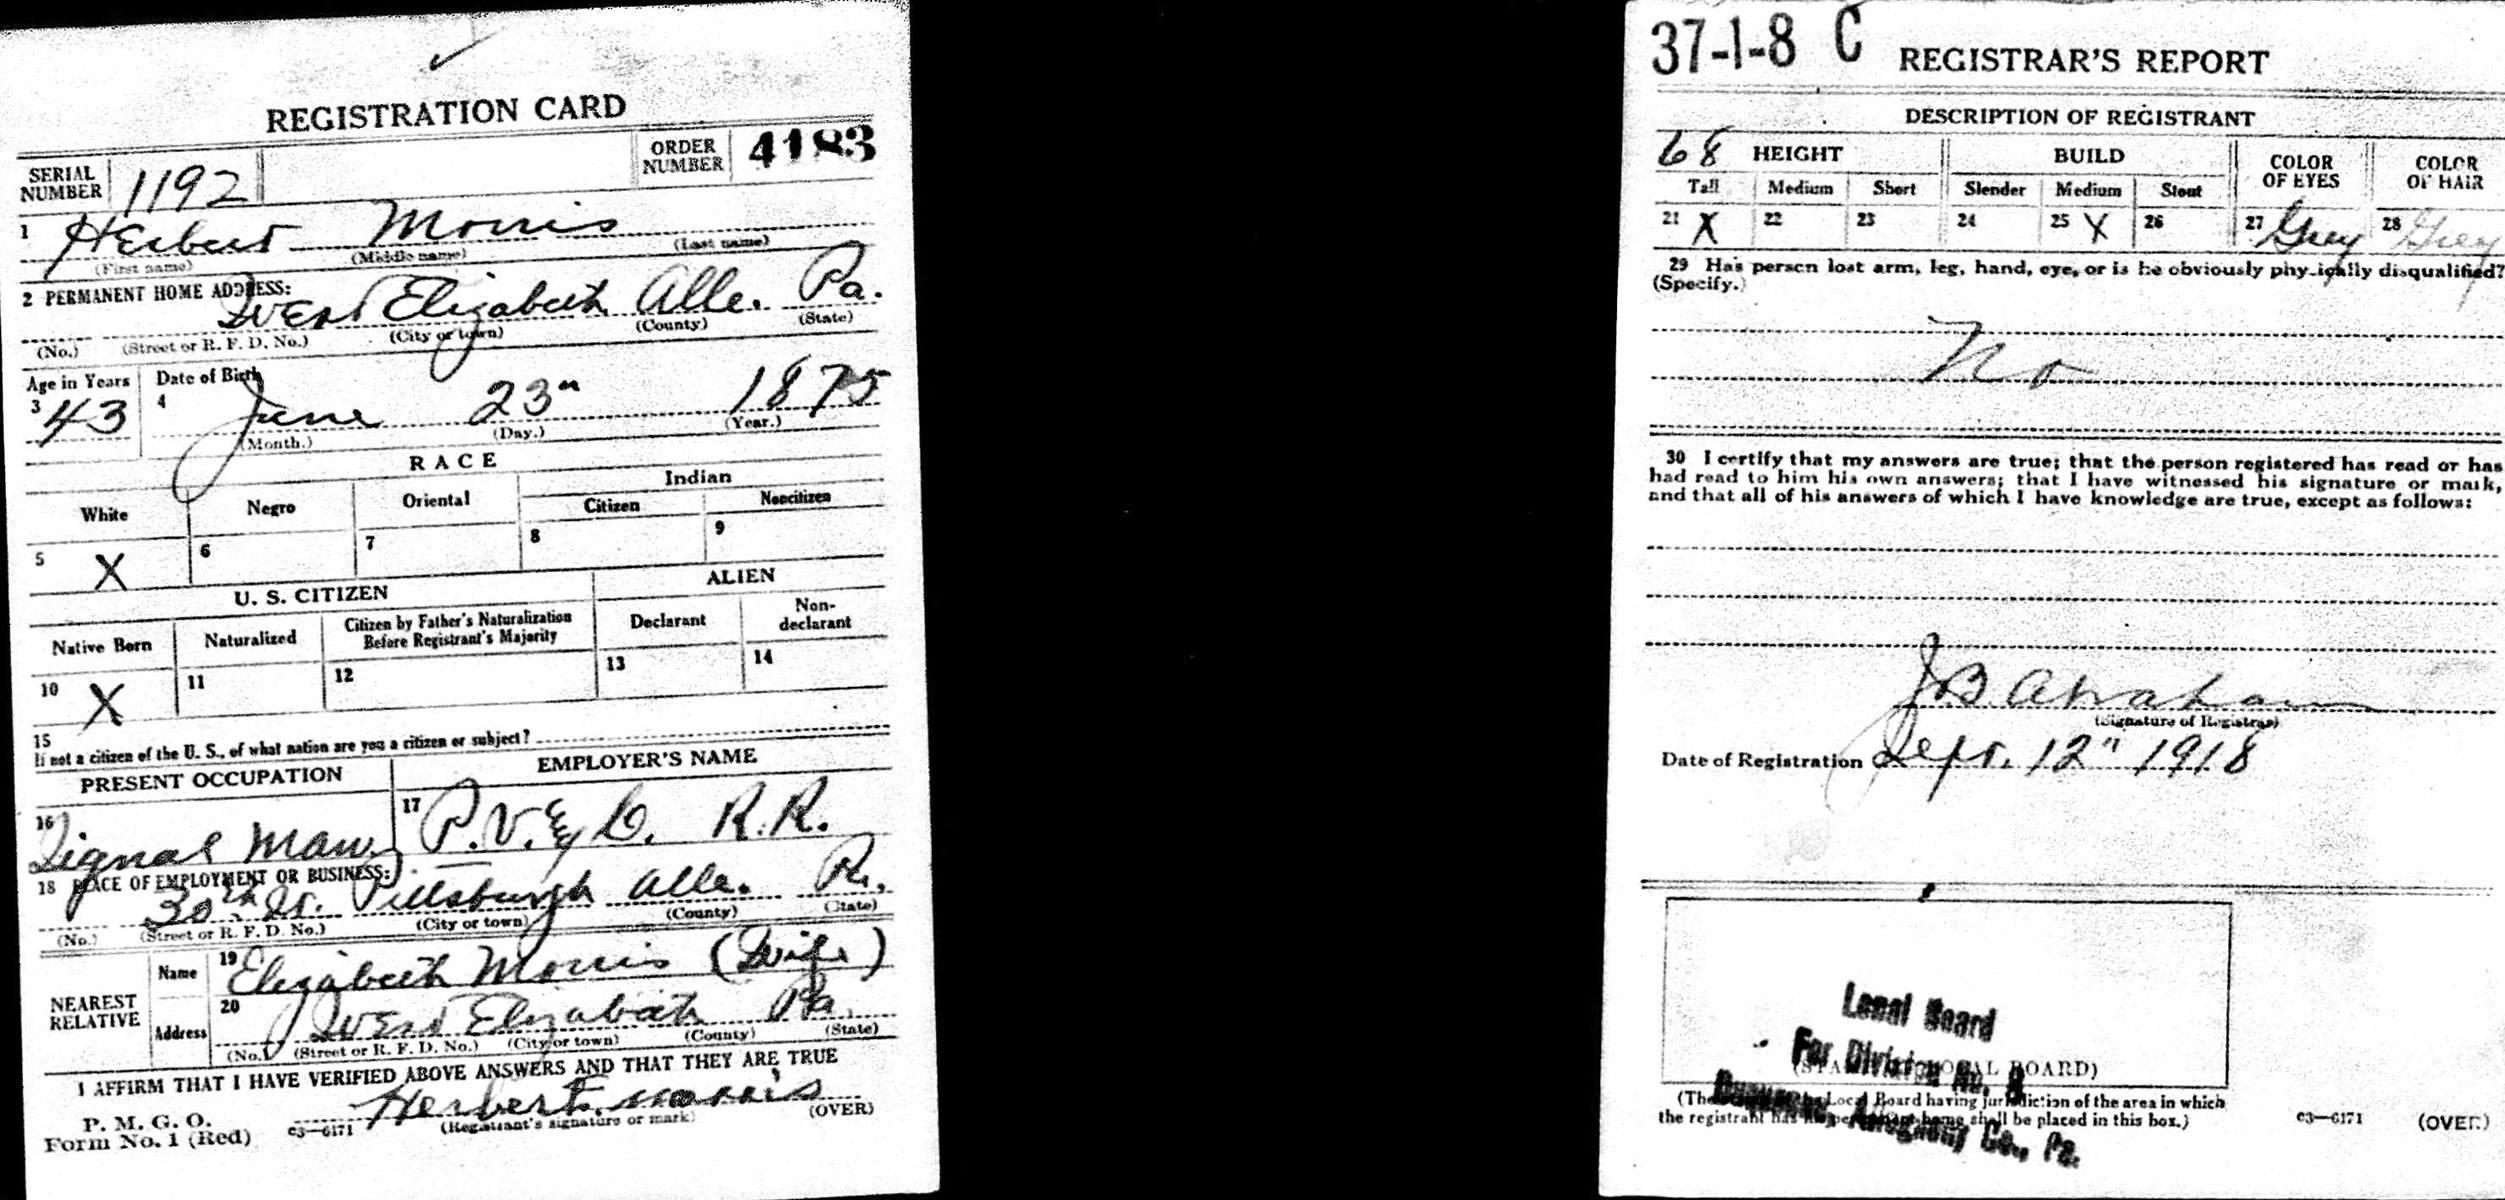 REGISTRATION CARD
SERIAL NUMBER 1192 ORDER NUMBER 4183
1 Herbert Morris
(First name) (Middle name) (Last name)
2 PERMANENT HOME ADDRESS:
West Elizabeth Alle. Pa.
(No.) (Street or R. F. D. No.) (City or town) (County) (State)
Age in Years Date of Birth
3 43 4 June 23" 1875
(Month.) (Day.) (Year.)
RACE
White Negro Oriental Indian
Citizen Noncitizen
5 X 6 7 8 9
U. S. CITIZEN ALIEN
Native Born Naturalized Citizen by Father's Naturalization Before Registrant's Majority Declarant Non-declarant
10 X 11 12 13 14
15
If not a citizen of the U. S., of what nation are you a citizen or subject?
PRESENT OCCUPATION EMPLOYER'S NAME
16 Signal Man 17 P. V. & C. R.R.
18 PLACE OF EMPLOYMENT OR BUSINESS:
30th St. Pittsburgh Alle. Pa.
(No.) (Street or R. F. D. No.) (City or town) (County) (State)
NEAREST RELATIVE
Name 19 Elizabeth Morris (Wife)
Address 20 West Elizabeth Pa.
(No.) (Street or R. F. D. No.) (City or town) (County) (State)
I AFFIRM THAT I HAVE VERIFIED ABOVE ANSWERS AND THAT THEY ARE TRUE
P. M. G. O.
Form No. 1 (Red) c3—6171 Herbert Morris
(Registrant's signature or mark) (OVER)
37-1-8 C REGISTRAR'S REPORT
DESCRIPTION OF REGISTRANT
68 HEIGHT BUILD COLOR OF EYES COLOR OF HAIR
Tall Medium Short Slender Medium Stout
21 X 22 23 24 25 X 26 27 Grey 28 Grey
29 Has person lost arm, leg, hand, eye, or is he obviously physically disqualified?
(Specify.)
No
30 I certify that my answers are true; that the person registered has read or has
had read to him his own answers; that I have witnessed his signature or mark,
and that all of his answers of which I have knowledge are true, except as follows:
J B Abraham
(Signature of Registrar)
Date of Registration Sept. 12" 1918
Local Board
For Division No. 8
(STAMP OF LOCAL BOARD)
Allegheny Co., Pa.
(The stamp of the Local Board having jurisdiction of the area in which
the registrant has his permanent home shall be placed in this box.)
c3—6171 (OVER)